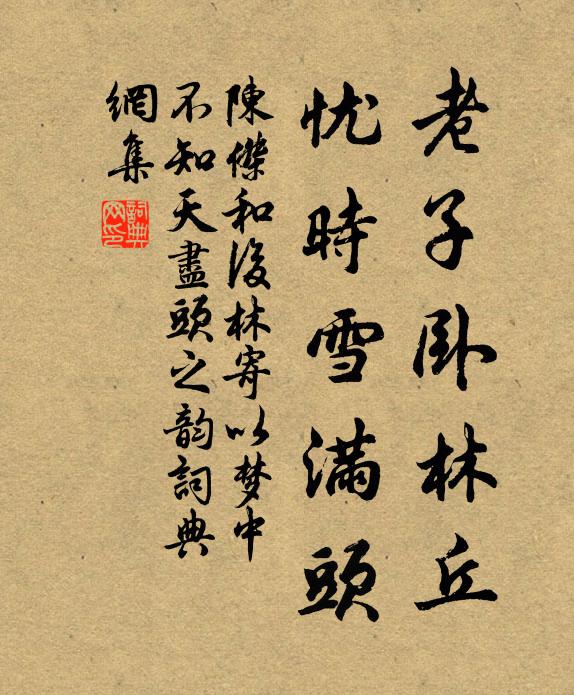 老子卧林丘
忧時雪满頭
陳傑和後林寄以梦中
不知天盡頭之韵詞典
網集
詞典
网印